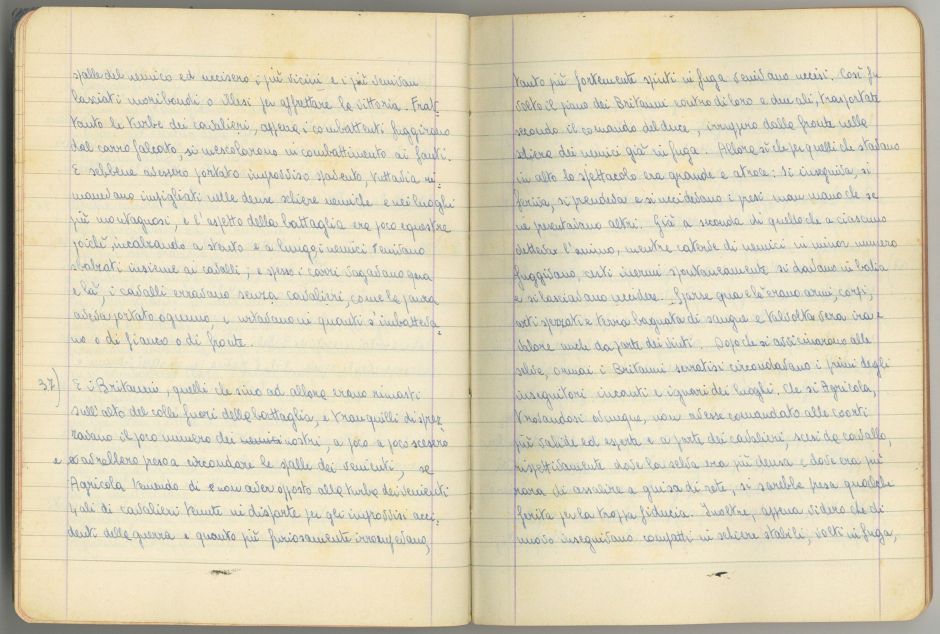 spalle del nemico ed uccisero i più vicini e i più venivan
lasciati moribondi o illesi per affrettare la vittoria. Frat=
tanto le turbe dei cavalieri, appena i combattenti fuggirono
dal carro falcato, si mescolarono in combattimento ai fanti.
E sebbene avessero portato improvviso spavento, tuttavia ri=
manevano impigliati nelle dense schiere nemiche e nei luoghi
più montagnosi, e l'aspetto della battaglia era poco equestre
poichè, a stento e a lungo i nemici venivano
sbalzati insieme ai cavalli; e spesso i carri vagavano qua
e là, i cavalli erravano senza cavalieri, come la paura
aveva portato ognuno, e urtavano in quanti s'imbatteva=
no o di fianco o di fronte.
37) E i Britanni, quelli che sino ad allora erano rimasti
sull'alto del colle fuori della battaglia, e tranquilli disprez=
zavano il poco numero dei nemici nostri, a poco a poco scesero
e avrebbero preso a circondare le spalle dei vincenti, se
Agricola temendo di non aver opposto alla turba dei venienti
4 ali di cavalieri tenute in disparte per gli improvvisi acci=
denti della guerra e quanto più furiosamente irrompevano,
tanto più fortemente spinti in fuga venivano uccisi. Così fu
volto il piano dei Britanni contro di loro e due ali, trasportate
secondo il comando del duce, irruppero dalla fronte nella
schiera dei nemici già in fuga. Allora sì che per quelli che stavano
in alto lo spettacolo era grande e atroce: si inseguiva, si
feriva, si prendeva e si uccidevano i presi man mano che se
ne presentavano altri. Già a seconda di quello che a ciascuno
dettava l'animo, mentre caterve di nemici in minor numero
fuggivano, certi inermi spontaneamente si davano in balìa
e si lasciavano uccidere. Sparse qua e là erano armi, corpi,
arti spezzati e terra bagnata di sangue e talvolta v'era ira e
valore anche da parte dei vinti. Dopo che si avvicinarono alle
selve, ormai i Britanni serratisi circondavano i primi degli
inseguitori incauti e ignari dei luoghi. Che se Agricola,
trovandosi ovunque, non avesse comandato alle coorti
più valide ed esperte e a parte dei cavalieri, scesi da cavallo,
rispettivamente dove la selva era più densa e dove era più
rara di assalire a guisa di rete, si sarebbe presa qualche
ferita per la troppa fiducia. Inoltre, appena videro che di
nuovo inseguivano compatti in schiere stabili, volti in fuga,